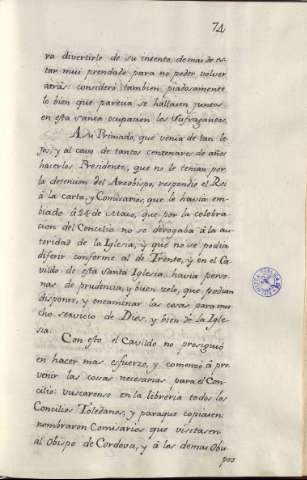 74
ra divertirlo de su intento, demas de es-
tar mui prendado para no poder volver
atrás: consideró tambien, piadosamente
lo bien que parecia se hallasen juntos
en esta santa ocupacion los Sufraganeos.
A su Primado, que venia de tan le-
jos, y al cavo de tantos centenares de años
hacerlos Presidente, que no le tenian por
la detencion del Arzobispo, respondió el Rei
á la carta, y Comisario, que le havia em-
biado á 24 de Maio, que por la celebra-
cion del Concilio no se derogaba á la au-
toridad de la Iglesia, y que no se podia
diferir conforme al de Trento, y en el Ca-
vildo de esta Santa Iglesia havia perso-
nas de prudencia, y buen zelo, que podian
disponer, y encaminar las cosas para mu-
cho servicio de Dios, y bien de la Igle-
sia.
Con esto el Cavildo no prosiguió
en hacer mas esfuerzo, y comenzó á pre-
venir las cosas necesarias para el Con-
cilio: buscaronse en la libreria todos los
Concilios Toledanos, y paraque copiasen
nombraron Comisarios que visitasen
al Obispo de Cordova, y á los demas Obis-
pos